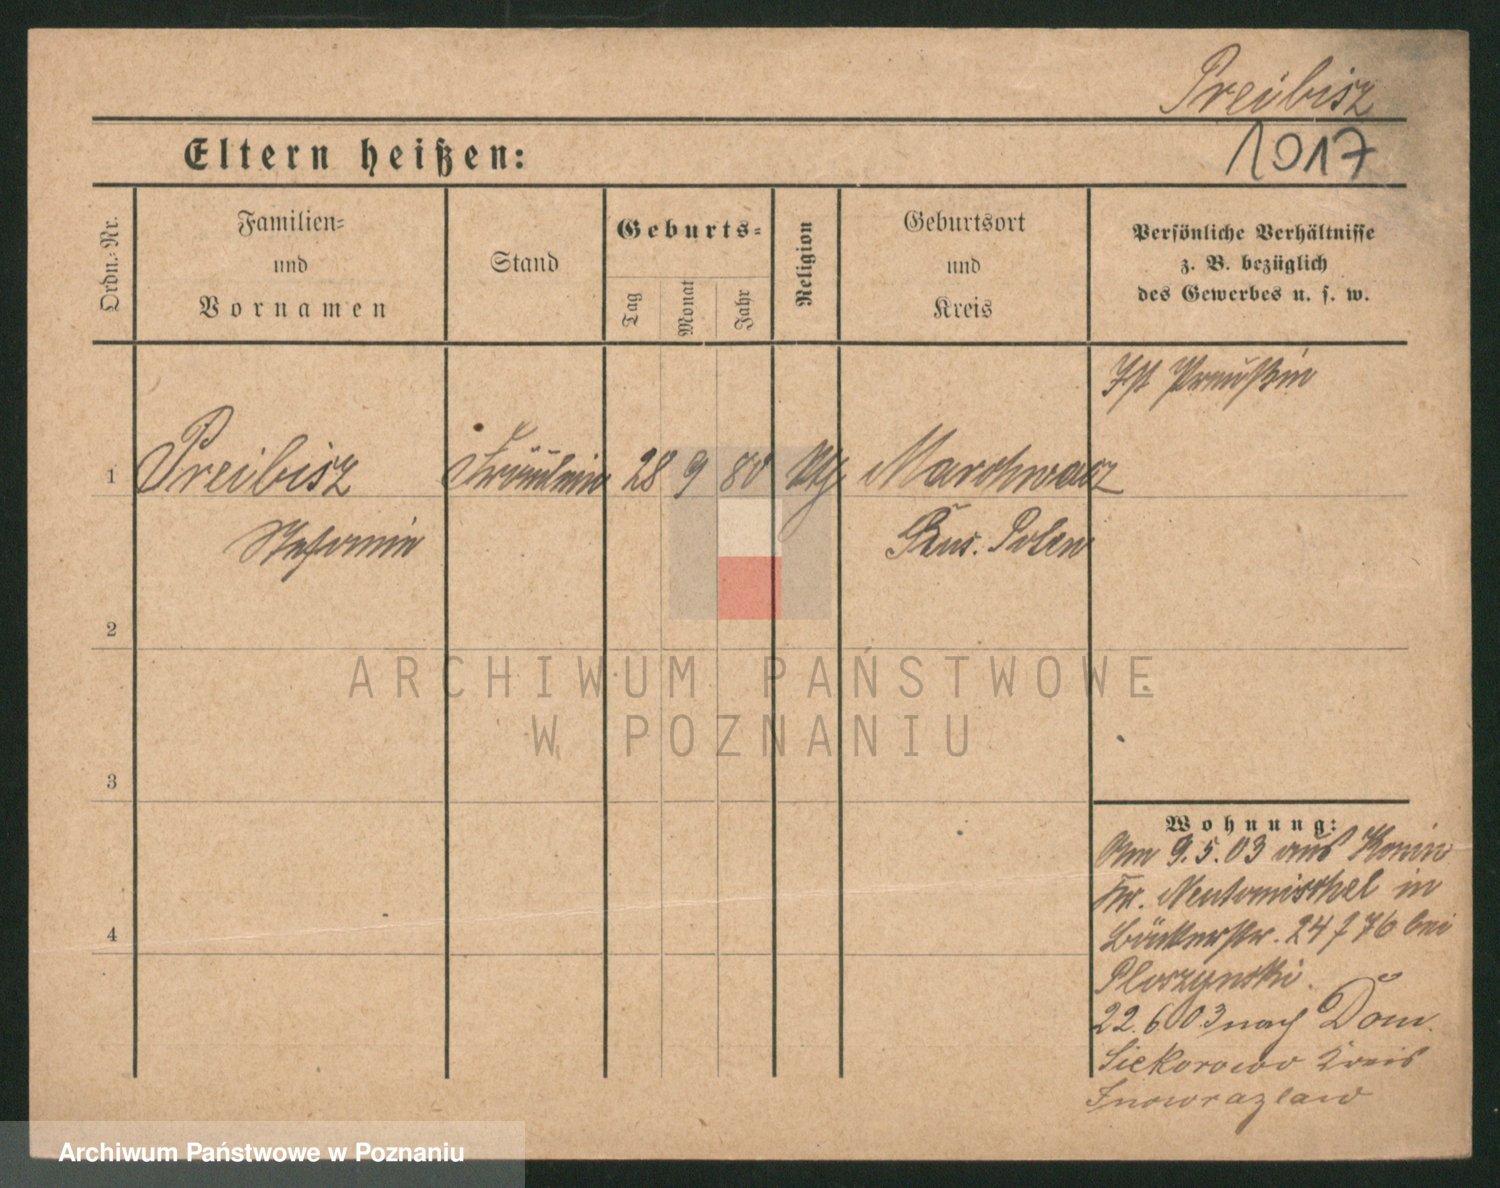 Preibisz
1017
Eltern heißen:
Ordn.-Nr.
Familien-
und
Vornamen
Stand
Geburts-
Tag
Monat
Jahr
Religion
Geburtsort
und
Kreis
Persönliche Verhältnisse
z. B. bezüglich
des Gewerbes u. s. w.
Ist Preußin
1 Preibisz Fräulein 28 9 80 Marchwacz
Stefanie Rus. Polen
2
ARCHIWUM PAŃSTWOWE
W POZNANIU
3
Wohnung:
Am 9.5.03 aus Konin
Kr. Neutomischel in
4
Bäckerstr. 24 f 76 bei
Ploszynski.
22.6.03 nach Dom.
Siekorowo Kreis
Inowrazlaw
Archiwum Państwowe w Poznaniu